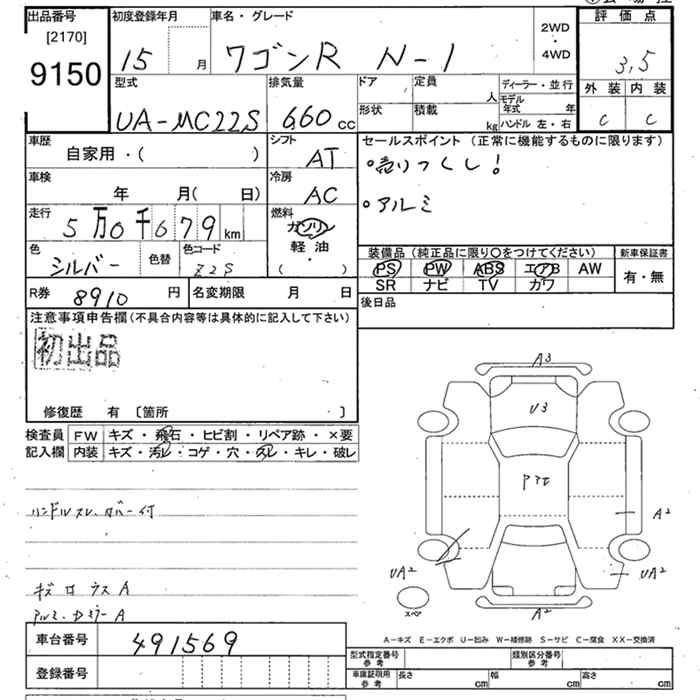 出品番号
[2170]
9150
初度登録年月
15 月
車名・グレード
ワゴンR N-1
2WD
4WD
評価点
3.5
外装 内装
C C
型式
UA-MC22S
排気量
660 cc
ドア 定員
人
形状 積載
kg
ディーラー・並行
モデル年式 年
ハンドル 左・右
車歴
自家用・( )
シフト
AT
セールスポイント (正常に機能するものに限ります)
・売りつくし!
・アルミ
車検
年 月( 日)
冷房
AC
走行
5万0千679km
燃料
ガソリン
軽油
( )
色
シルバー
色替
色コード
Z2S
装備品 (純正品に限り〇をつけてください)
PS PW ABS エアB AW
SR ナビ TV カワ
新車保証書
有・無
R券 8910 円
名変期限 月 日
後日品
注意事項申告欄(不具合内容等は具体的に記入して下さい)
初出品
修復歴 有 〔箇所 〕
検査員記入欄
FW キズ・飛石・ヒビ割・リペア跡・×要
内装 キズ・汚レ・コゲ・穴・スレ・キレ・破レ
ハンドルスレ、カバー付
A3
U3
A2
UA2
UA2
スペア
A2
A−キズ E−エクボ U−凹み W−補修跡 S−サビ C−腐食 XX−交換済
車台番号
491569
登録番号
型式指定番号
参考
類別区分番号
参考
車庫証明用
参考
長さ cm
幅 cm
高さ cm